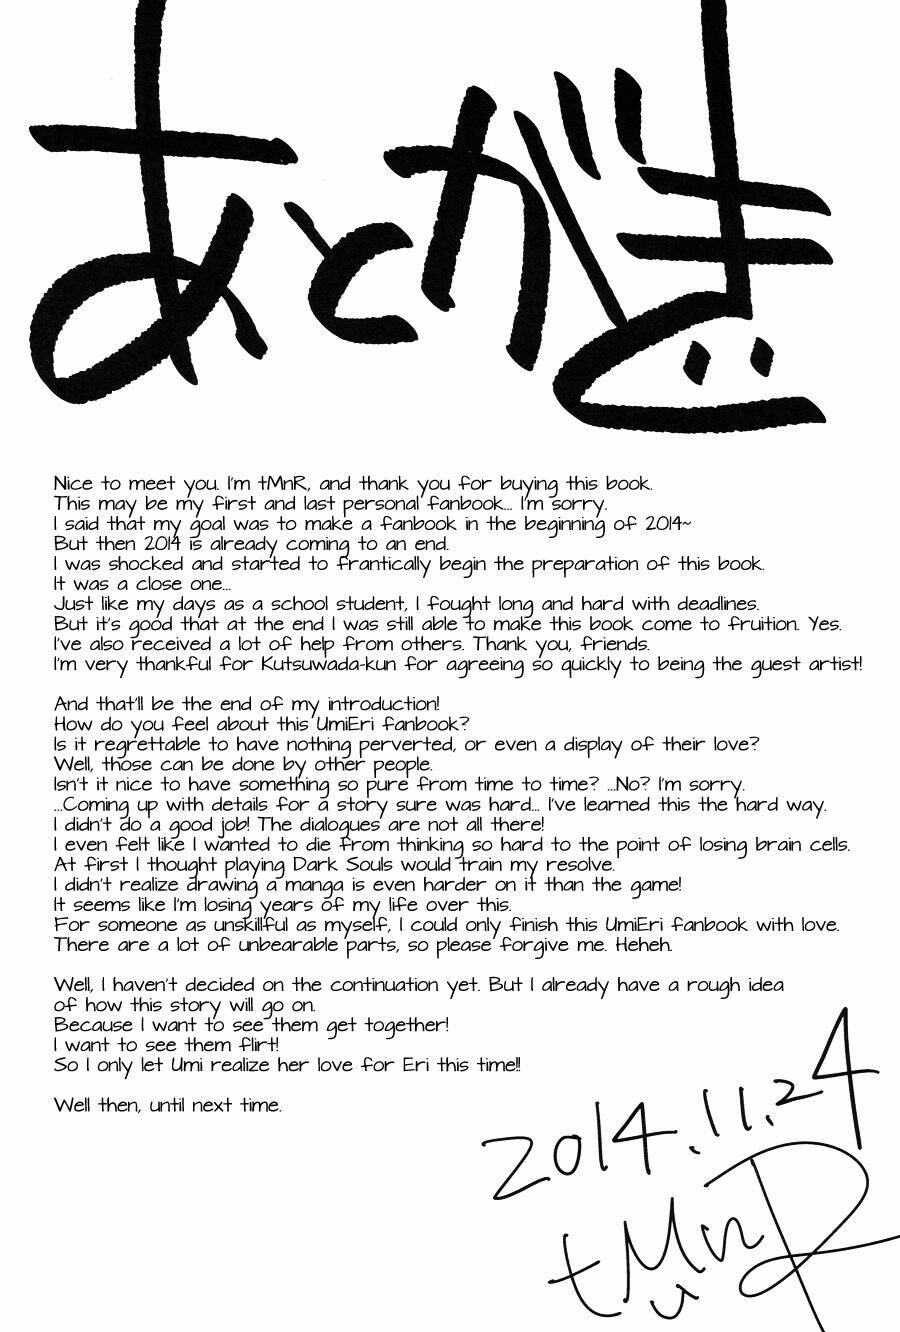 あとがき
Nice to meet you. I'm tMnR, and thank you for buying this book.
This may be my first and last personal fanbook... I'm sorry.
I said that my goal was to make a fanbook in the beginning of 2014~
But then 2014 is already coming to an end.
I was shocked and started to frantically begin the preparation of this book.
It was a close one...
Just like my days as a school student, I fought long and hard with deadlines.
But it's good that at the end I was still able to make this book come to fruition. Yes.
I've also received a lot of help from others. Thank you, friends.
I'm very thankful for Kutsuwada-kun for agreeing so quickly to being the guest artist!
And that'll be the end of my introduction!
How do you feel about this UmiEri fanbook?
Is it regrettable to have nothing perverted, or even a display of their love?
Well, those can be done by other people.
Isn't it nice to have something so pure from time to time? ...No? I'm sorry.
...Coming up with details for a story sure was hard... I've learned this the hard way.
I didn't do a good job! The dialogues are not all there!
I even felt like I wanted to die from thinking so hard to the point of losing brain cells.
At first I thought playing Dark Souls would train my resolve.
I didn't realize drawing a manga is even harder on it than the game!
It seems like I'm losing years of my life over this.
For someone as unskillful as myself, I could only finish this UmiEri fanbook with love.
There are a lot of unbearable parts, so please forgive me. Heheh.
Well, I haven't decided on the continuation yet. But I already have a rough idea
of how this story will go on.
Because I want to see them get together!
I want to see them flirt!
So I only let Umi realize her love for Eri this time!!
Well then, until next time.
2014.11.24
tMnR